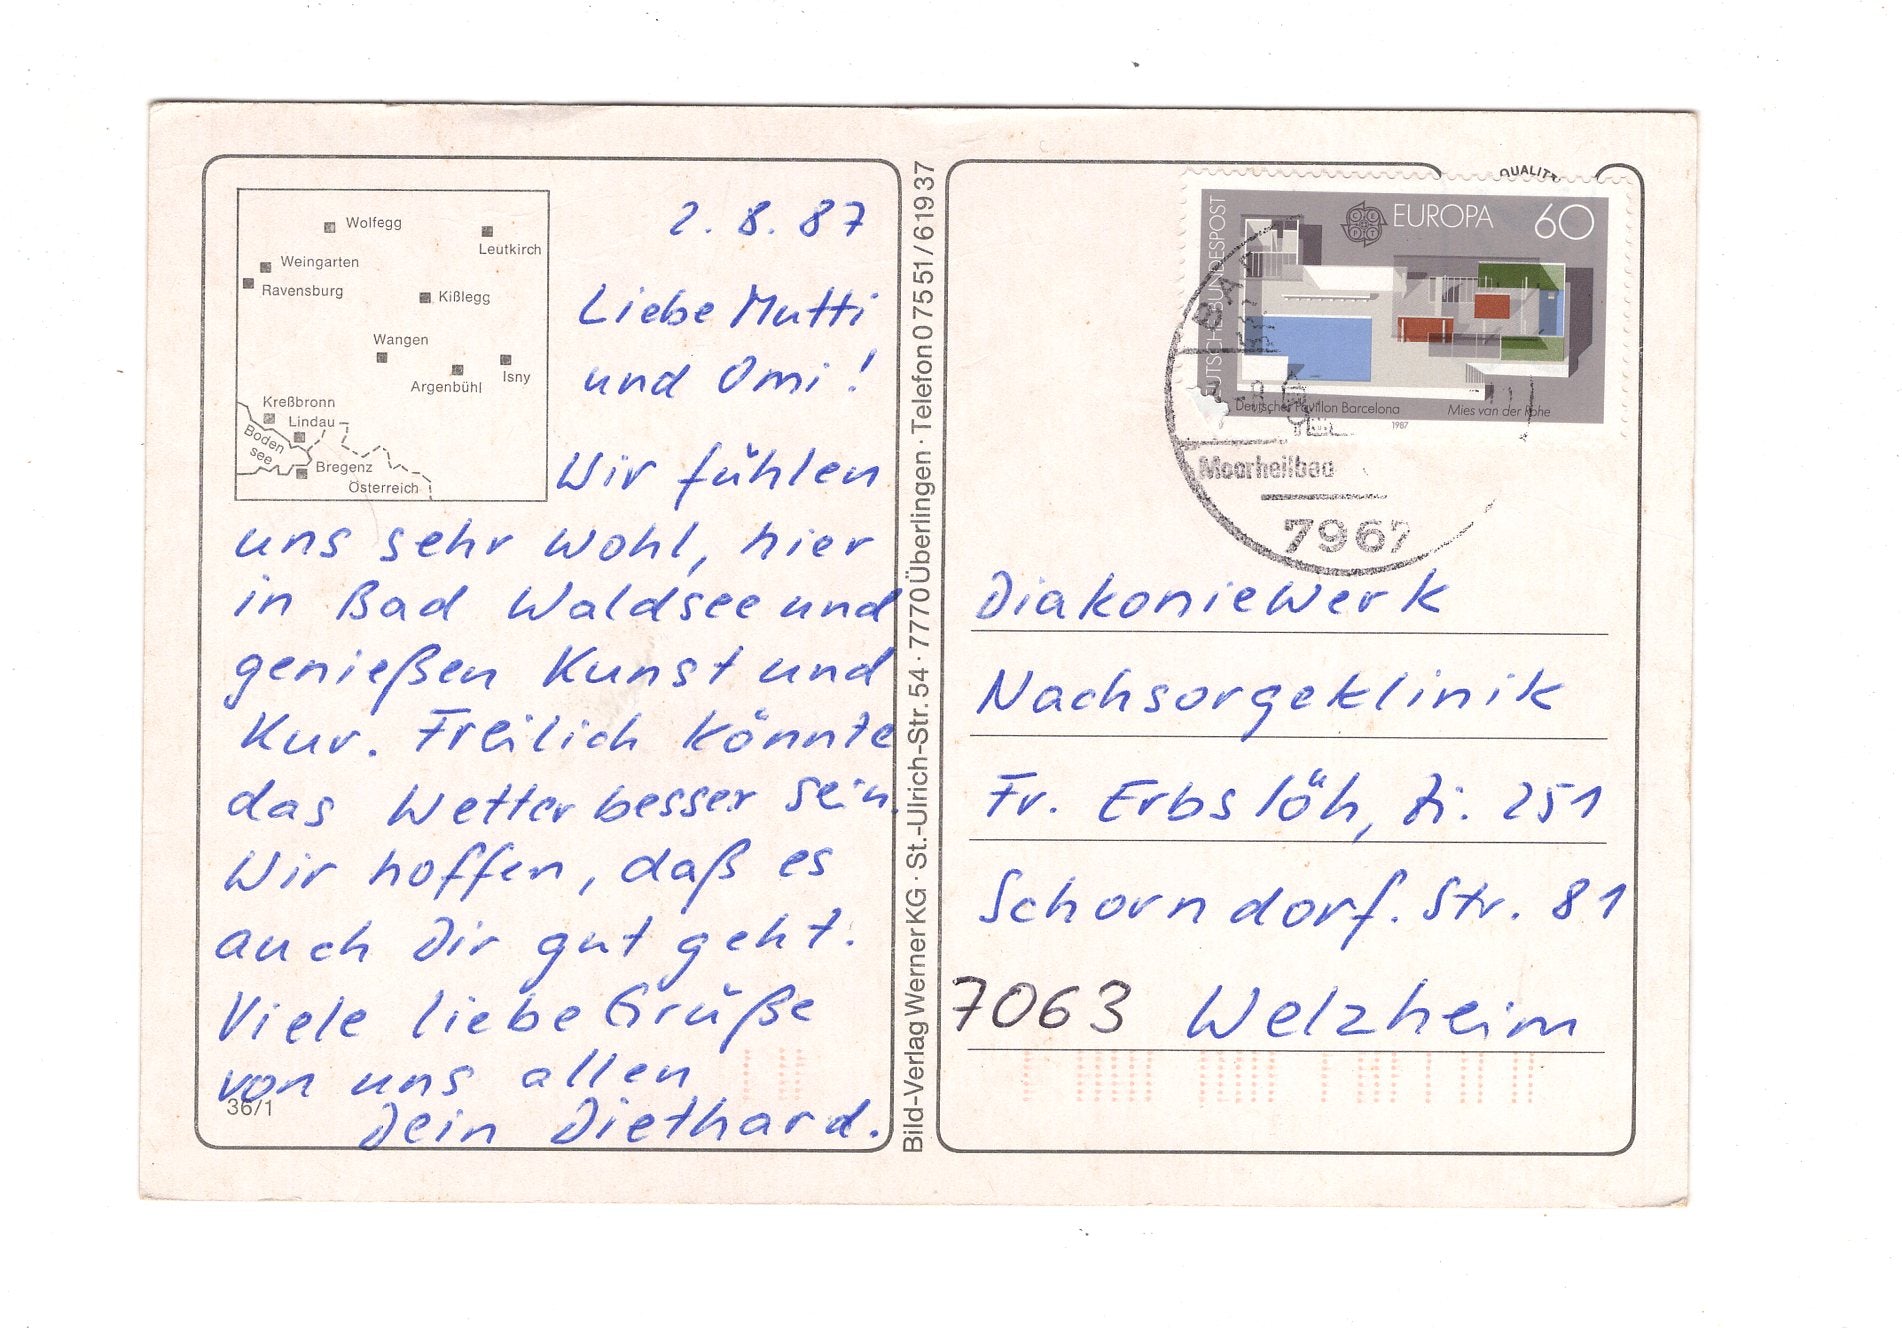 Wolfegg
Leutkirch
Weingarten
Ravensburg
Kißlegg
Wangen
Argenbühl
Isny
Kreßbronn
Lindau
Boden
see
Bregenz
Österreich
2. 8. 87
Liebe Mutti
und Omi!
Wir fühlen
uns sehr wohl, hier
in Bad Waldsee und
genießen Kunst und
Kur. Freilich könnte
das Wetter besser sein.
Wir hoffen, daß es
auch Dir gut geht.
Viele liebe Grüße
von uns allen
Dein Diethard.
36/1
Bild-Verlag Werner KG · St.-Ulrich-Str. 54 · 7770 Überlingen · Telefon 07551/61937
QUALIT
DEUTSCHE BUNDESPOST
CEPT
EUROPA 60
Deutscher Pavillon Barcelona Mies van der Rohe
1987
BAD
Moorheilbad
7967
Diakoniewerk
Nachsorgeklinik
Fr. Erbslöh, Zi. 251
Schorndorf. Str. 81
7063 Welzheim